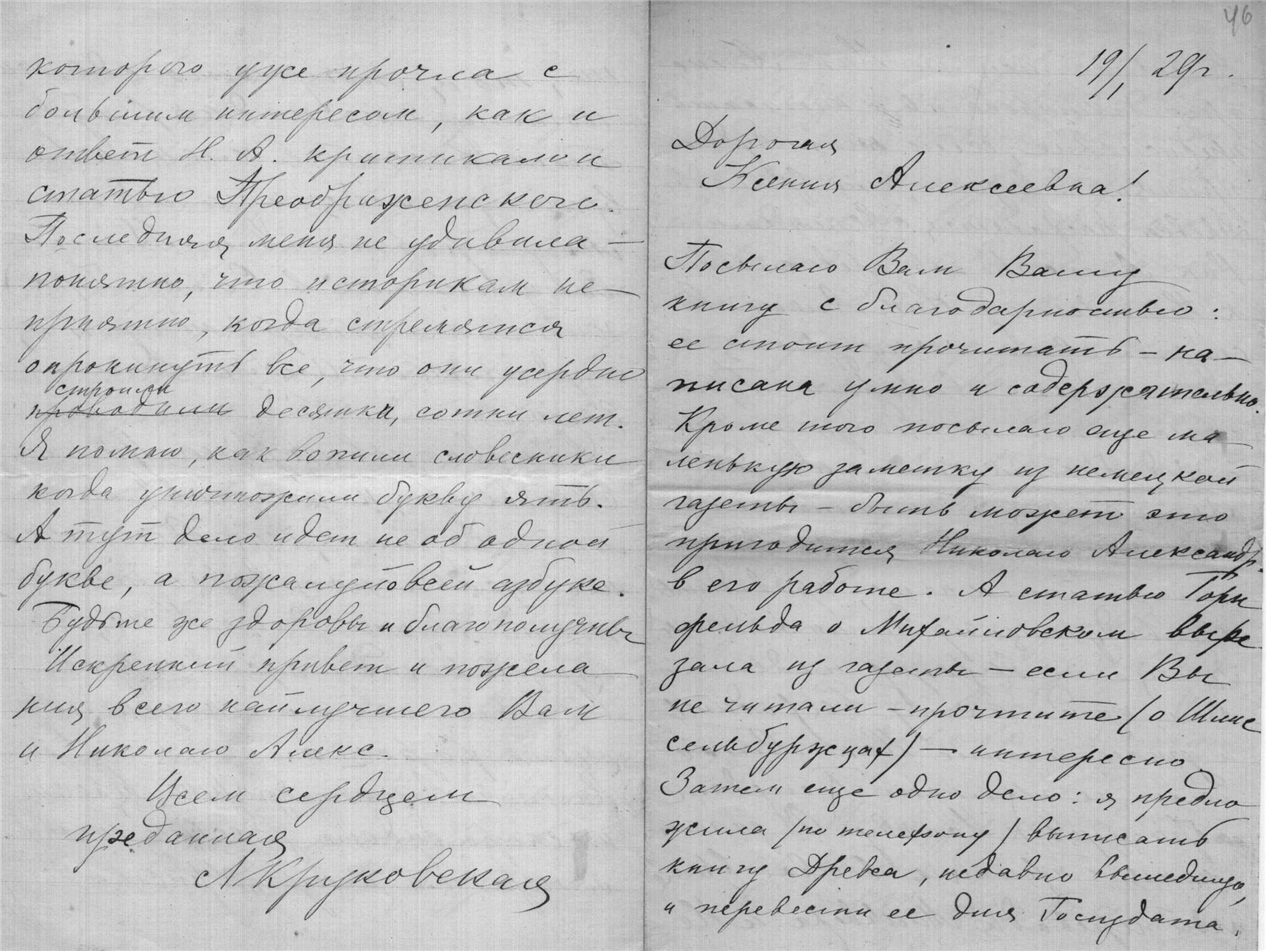 46
19/I 29г.
Дорогая
Ксения Алексеевна!
Посылаю Вам Вашу
книгу с благодарностью:
ее стоит прочитать – на–
писана умно и содержательно.
Кроме того посылаю еще ма–
ленькую заметку из немецкой
газеты – быть может это
пригодится Николаю Александр.
в его работе. А статью Горн
фельда о Михайловском выре
зала из газеты – если Вы
не читали – прочтите (о Шлис
сельбуржцах) – интересно.
Затем еще одно дело: я предло
жила (по телефону) выписать
книгу Древса, недавно вышедшую,
и перевести ее для Госиздата.
которого уже прочла с
большим интересом, как и
ответ Н. А. критикам и
статью Преображенского.
Последняя меня не удивила –
понятно, что историкам не–
приятно, когда стремятся
опрокинуть все, что они усердно
строили
проводили десятки, сотни лет.
Я помню, как вопили словесники
когда уничтожили букву ять.
А тут дело идет не об одной
букве, а пожалуй о всей азбуке.
Будьте же здоровы и благополучны
Искренний привет и пожела
ния всего найлучшего Вам
и Николаю Алекс.
Всем сердцем
преданная
Л Круковская